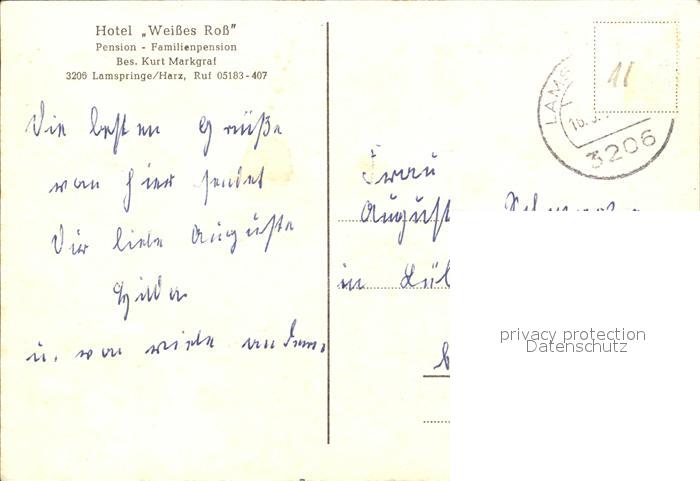 Hotel „Weißes Roß"
Pension - Familienpension
Bes. Kurt Markgraf
3206 Lamspringe/Harz, Ruf 05183-407
11
LAMS
3206
Die besten Grüße
von hier sendet
Dir liebe Auguste
Hilda
u. von viele andern.
Frau
August
in
privacy protection
Datenschutz